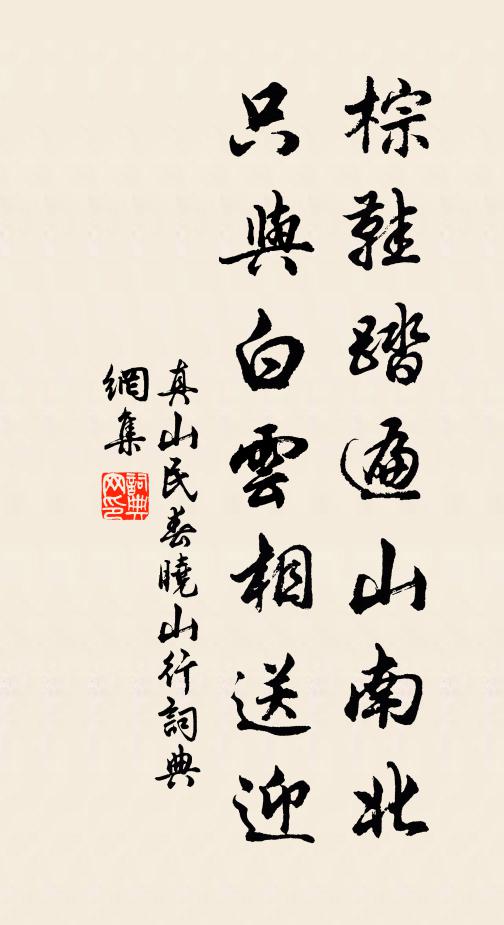 棕鞋踏遍山南北
只與白雲相送迎
真山民春曉山行詞典
網集
詞典网印